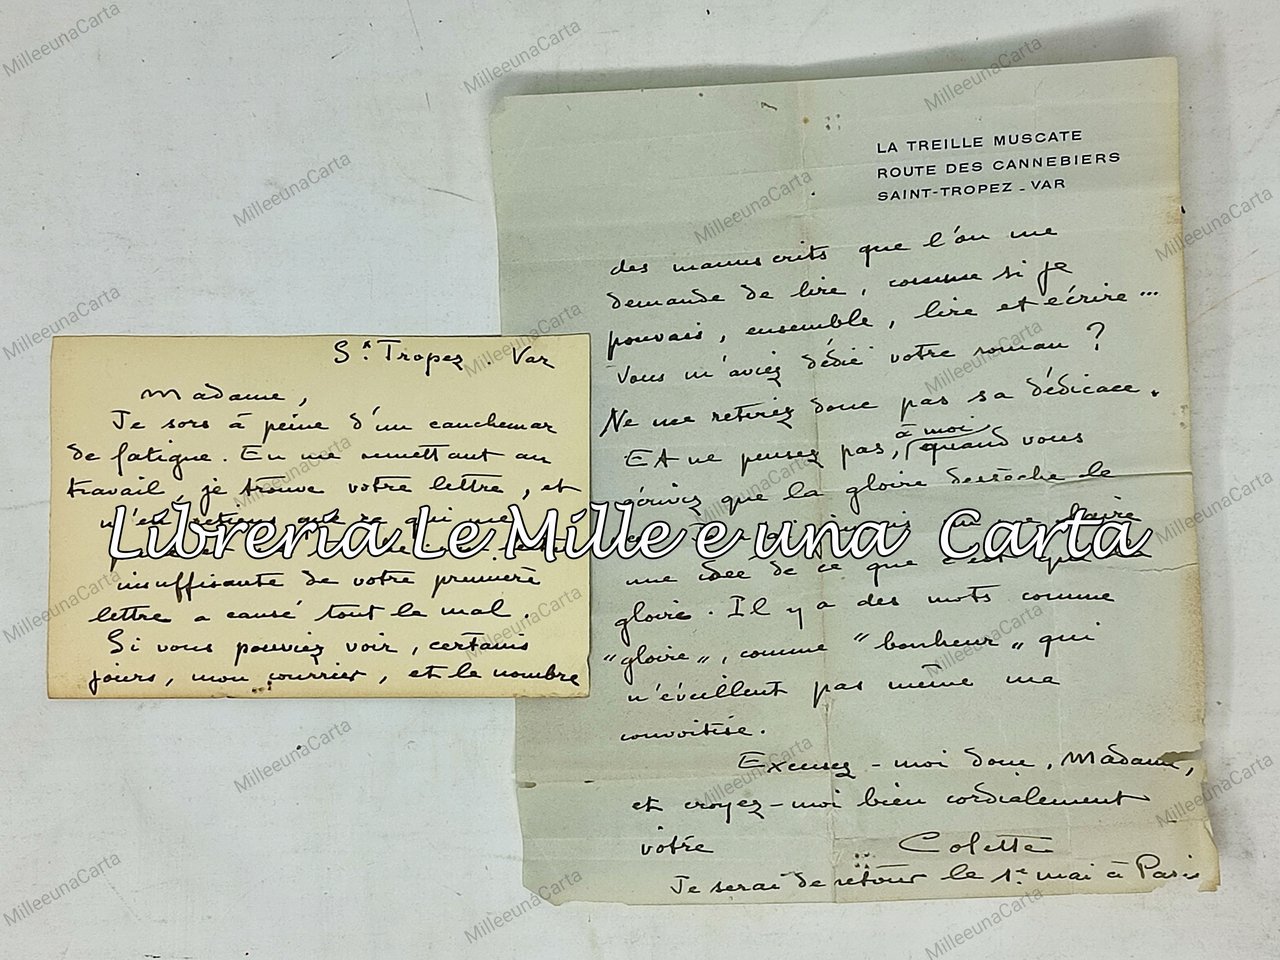 St. Tropez. Var
Madame,
Je sors à peine d'un cauchemar
de fatigue. En me remettant au
travail, je trouve votre lettre, et
insuffisante de votre première
lettre a causé tout le mal.
Si vous pouviez voir, certains
jours, mon courrier, et le nombre
LA TREILLE MUSCATE
ROUTE DES CANNEBIERS
SAINT-TROPEZ - VAR
des manuscrits que l'on me
demande de lire, comme si je
pouvais, ensemble, lire et écrire...
Vous m'aviez dédié votre roman ?
Ne me retirez donc pas sa dédicace.
Et ne pensez pas, à moi, quand vous
écrivez que la gloire dessèche le
une idée de ce que c'est que la
gloire. Il y a des mots comme
"gloire", comme "bonheur" qui
n'éveillent pas même ma
convoitise.
Excusez-moi donc, Madame,
et croyez-moi bien cordialement
vôtre
Colette
Je serai de retour le 1er mai à Paris
Libreria Le Mille e una Carta
MilleeunaCarta